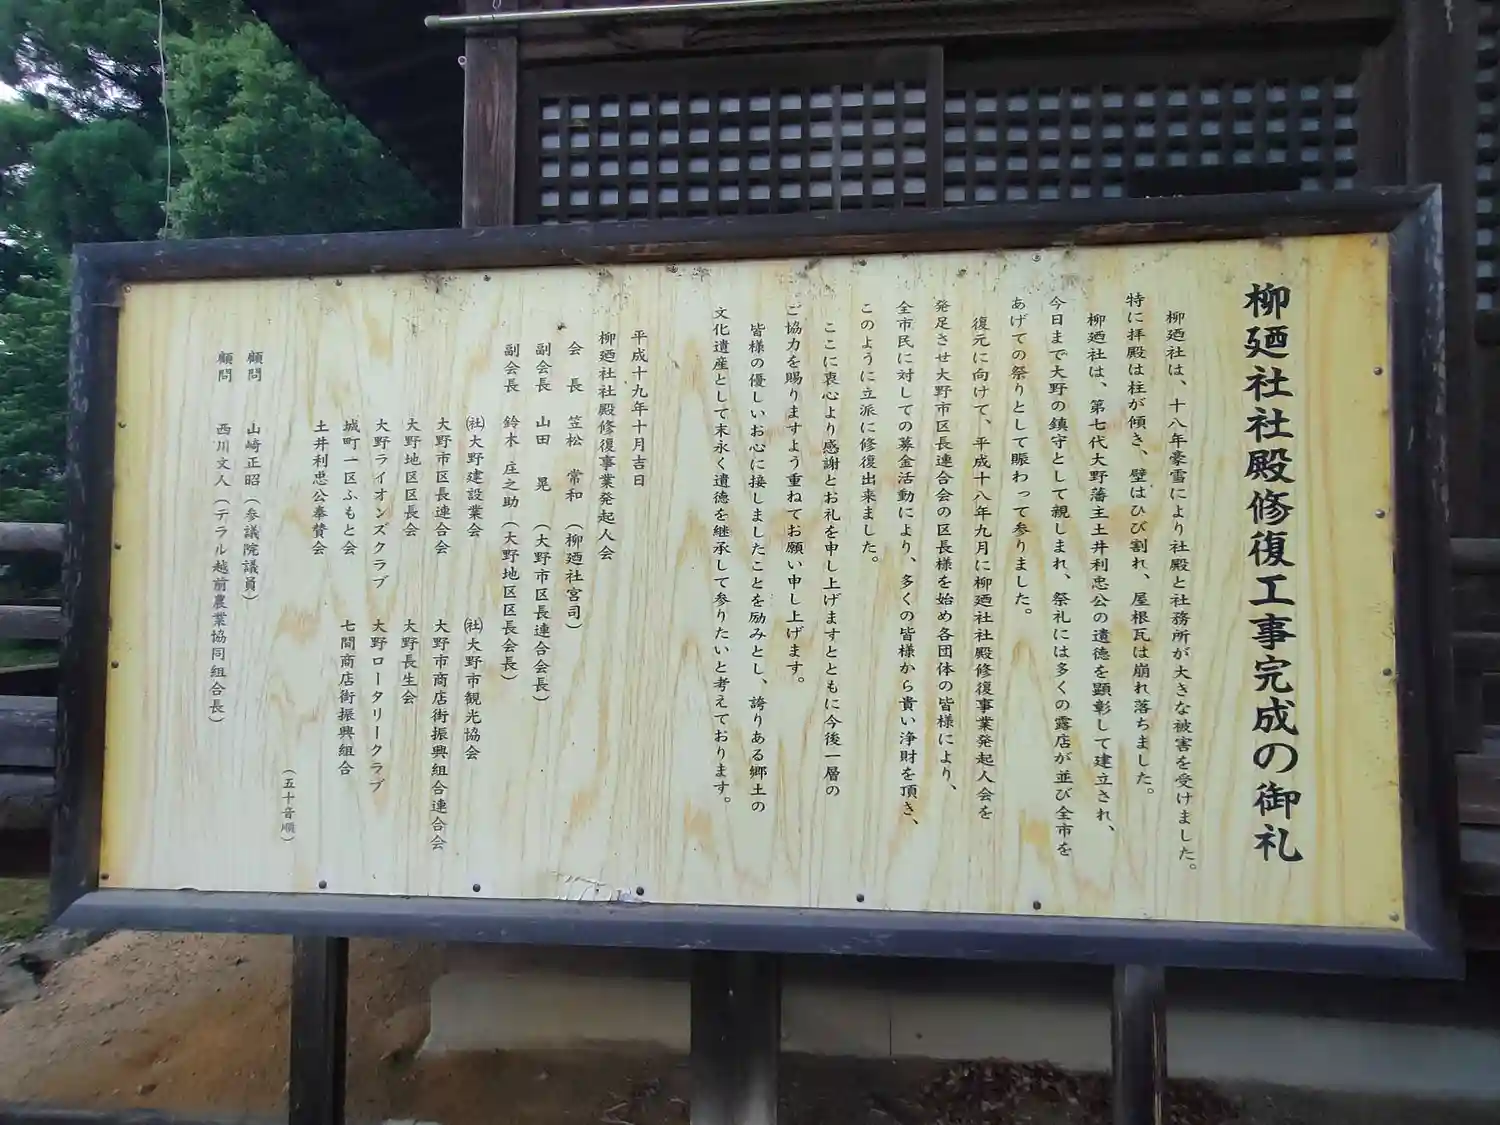 柳廼社社殿修復工事完成の御礼
柳廼社は、十八年豪雪により社殿と社務所が大きな被害を受けました。
特に拝殿は柱が傾き、壁はひび割れ、屋根瓦は崩れ落ちました。
柳廼社は、第七代大野藩主土井利忠公の遺徳を顕彰して建立され、
今日まで大野の鎮守として親しまれ、祭礼には多くの露店が並び全市を
あげての祭りとして賑わって参りました。
復元に向けて、平成十八年九月に柳廼社社殿修復事業発起人会を
発足させ大野市区長連合会の区長様を始め各団体の皆様により、
全市民に対しての募金活動により、多くの皆様から貴い浄財を頂き、
このように立派に修復出来ました。
ここに衷心より感謝とお礼を申し上げますとともに今後一層の
ご協力を賜りますよう重ねてお願い申し上げます。
皆様の優しいお心に接しましたことを励みとし、誇りある郷土の
文化遺産として末永く遺徳を継承して参りたいと考えております。
平成十九年十月吉日
柳廼社社殿修復事業発起人会
会長 笠松 常和 （柳廼社宮司）
副会長 山田 晃 （大野市区長連合会長）
副会長 鈴木 庄之助 （大野地区区長会長）
㈳大野建設業会 ㈳大野市観光協会
大野市区長連合会 大野市商店街振興組合連合会
大野地区区長会 大野長生会
大野ライオンズクラブ 大野ロータリークラブ
城町一区ふもと会 七間商店街振興組合
土井利忠公奉賛会
（五十音順）
顧問 山崎正昭（参議院議員）
顧問 西川文人（テラル越前農業協同組合長）